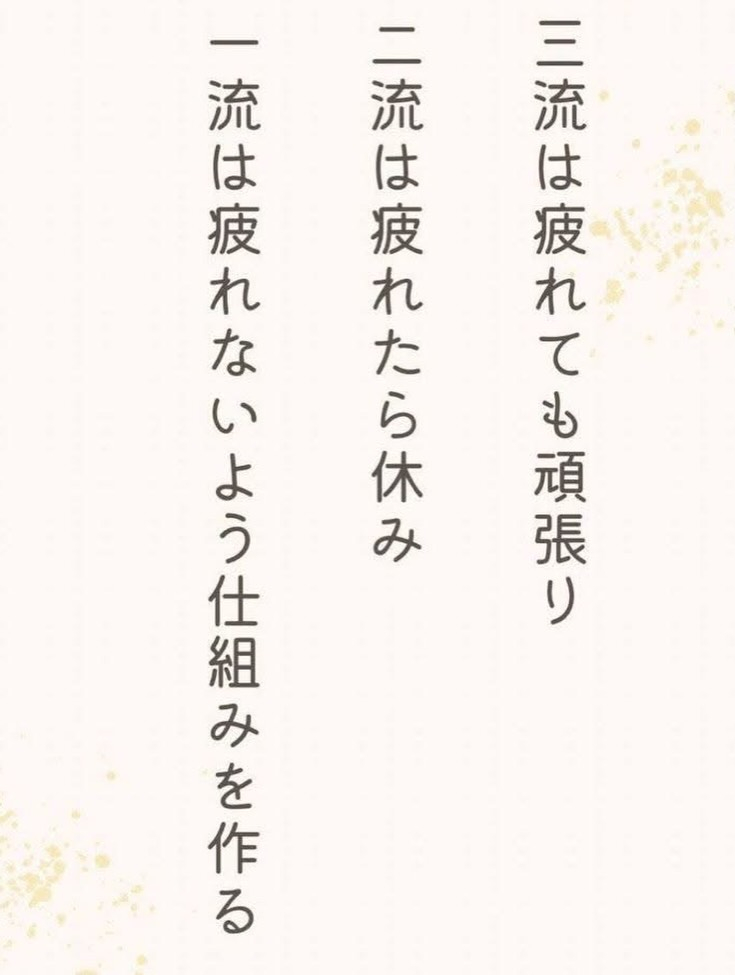 三流は疲れても頑張り
二流は疲れたら休み
一流は疲れないよう仕組みを作る